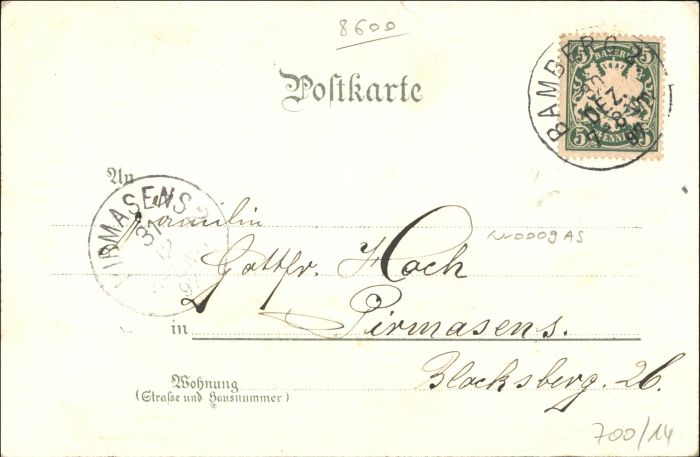 8600
Postkarte
BAMBERG 2
30
DEZ.
BAYERN
5 5
5 PFENNIG 5
An
PIRMASENS
31
12
Familie
Gottfr. Hoch
in Pirmasens.
Wohnung
(Straße und Hausnummer)
Blocksberg. 26.
700/14